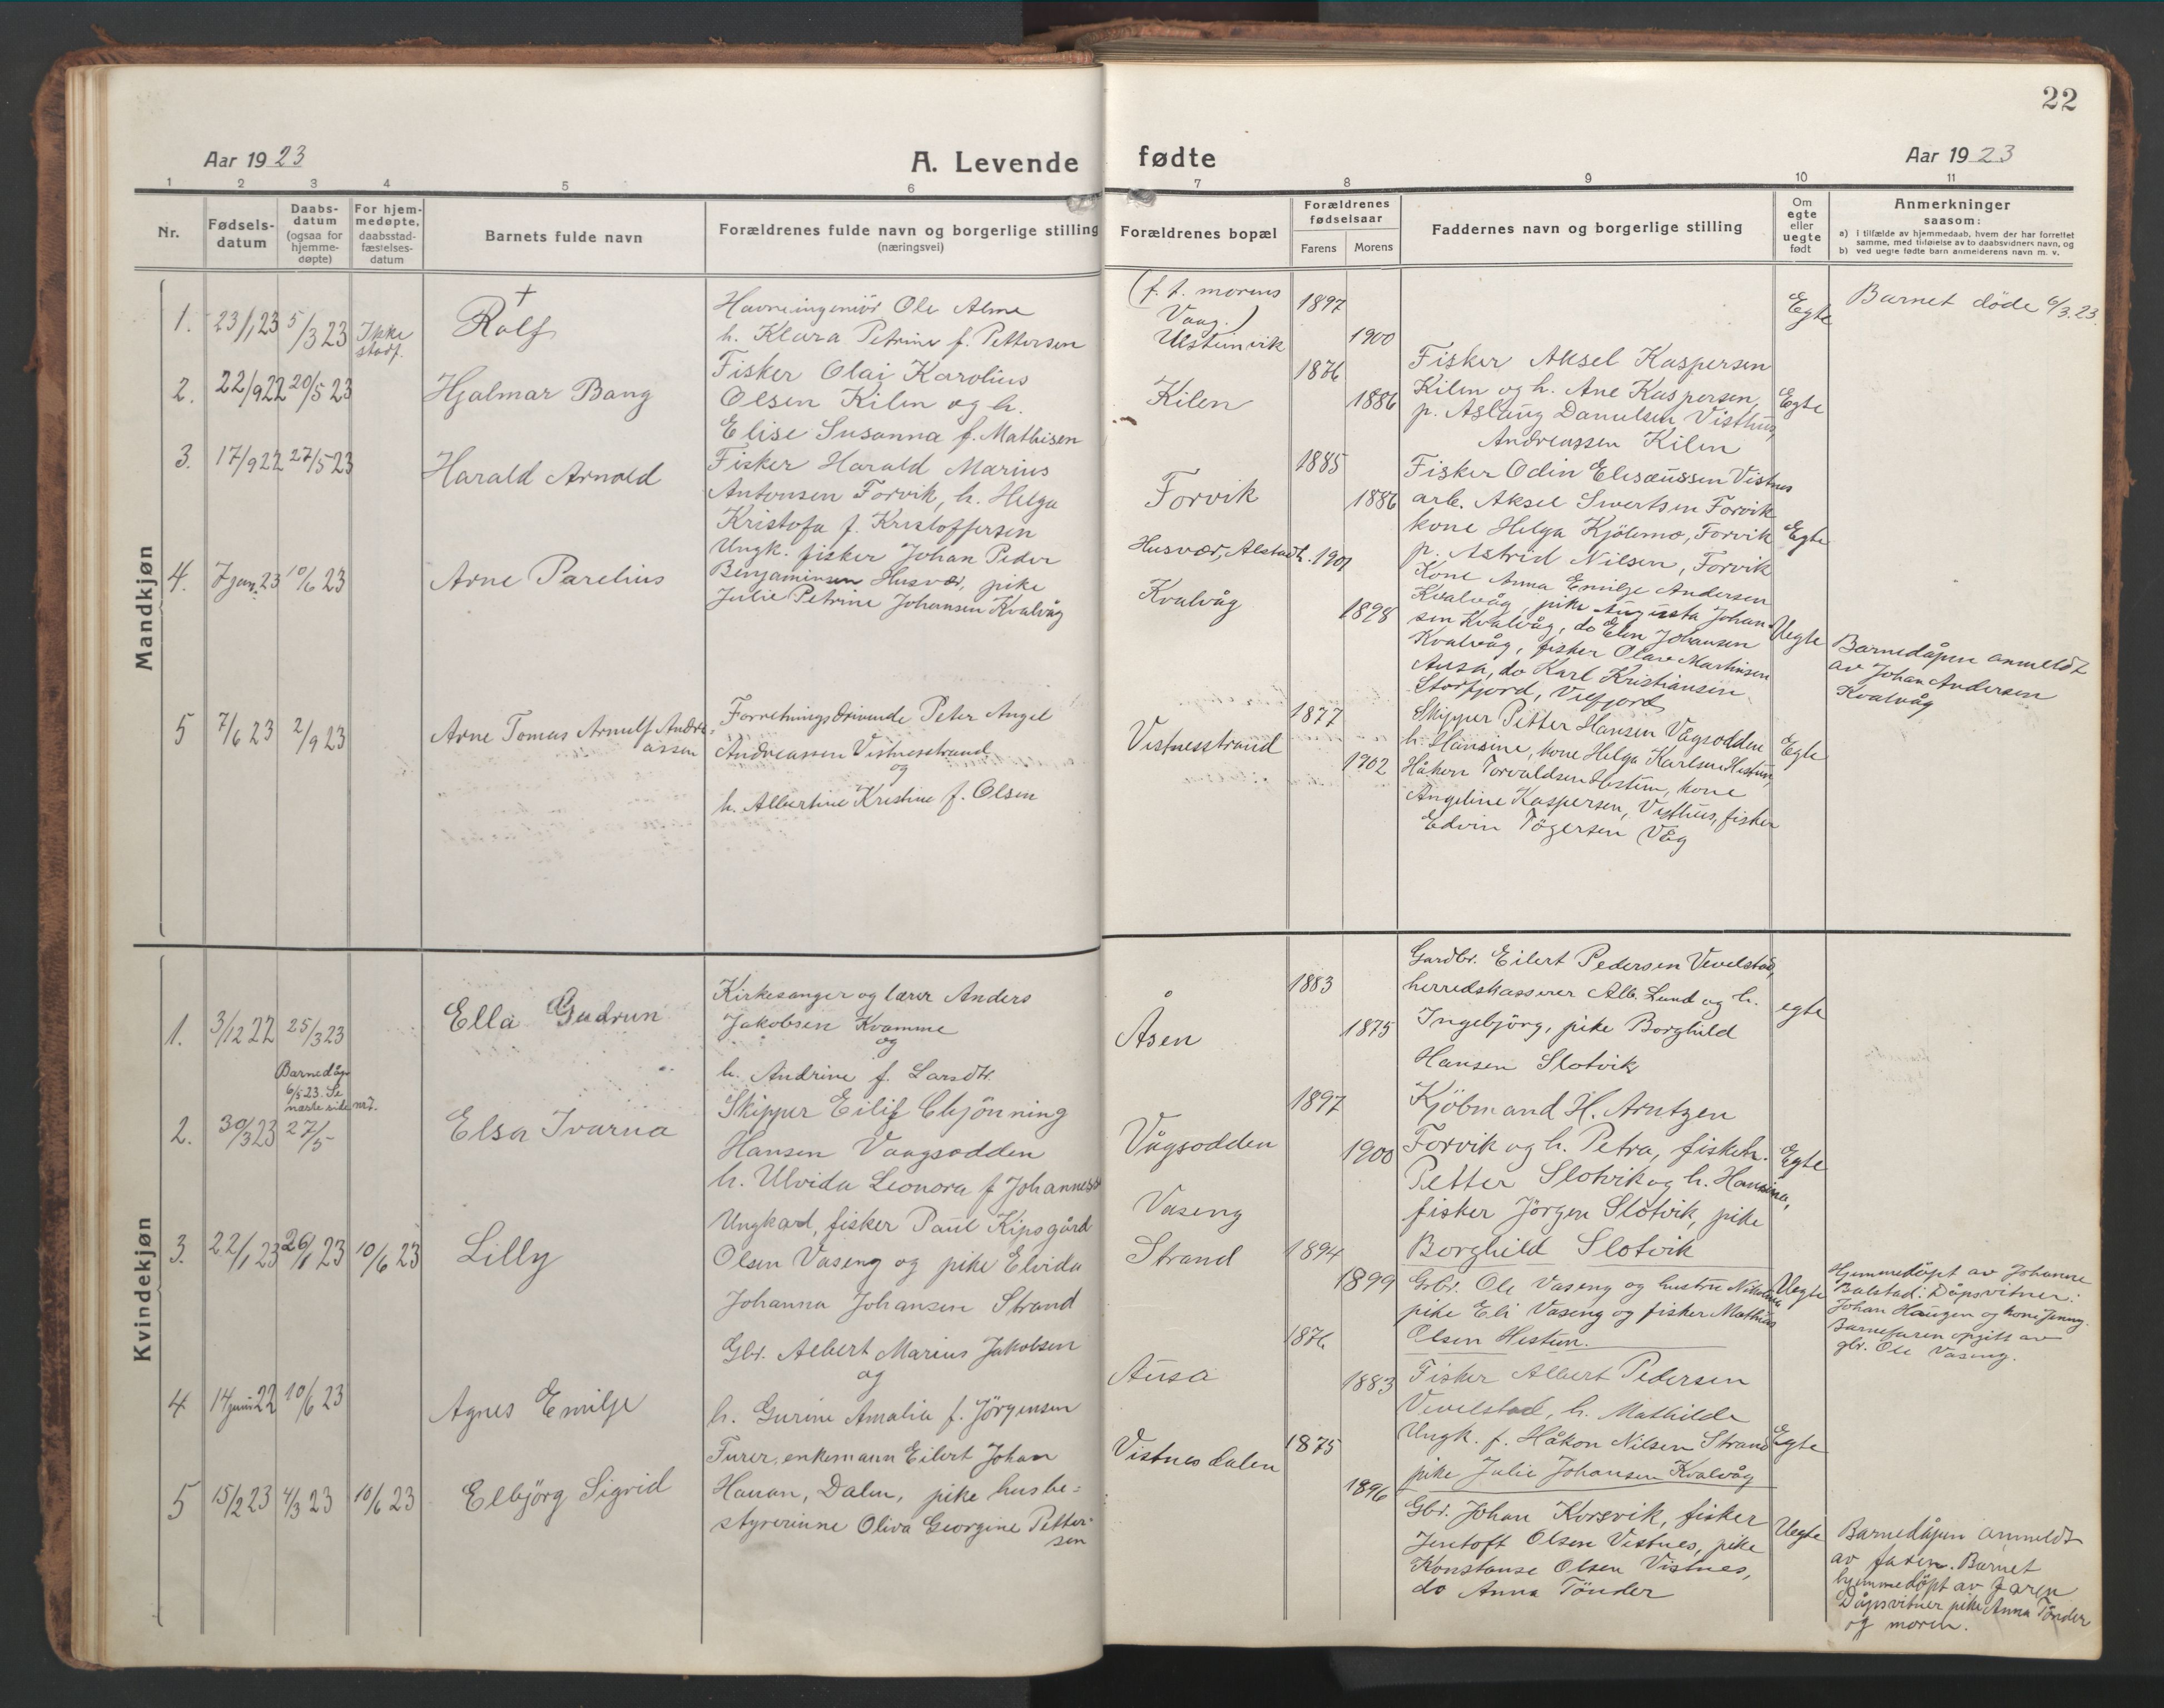 22
Aar 1923
A. Levende fødte
Aar 1923
1 2 3 4 5 6 7 8 9 10 11
Nr.
Fødsels-
datum
Daabs-
datum
(ogsaa for
hjemme-
døpte)
For hjem-
medøpte,
daabsstad-
fæstelses-
datum
Barnets fulde navn
Forældrenes fulde navn og borgerlige stilling
(næringsvei)
Forældrenes bopæl
Forældrenes
fødselsaar
Farens Morens
Faddernes navn og borgerlige stilling
Om
egte
eller
uegte
født
Anmerkninger
saasom:
a) i tilfælde av hjemmedaab, hvem der har forrettet
samme, med tilføielse av to daabsvidners navn, og
b) ved uegte fødte barn anmelderens navn m. v.
Mandkjøn
1. 23/1 23 5/3 23 Ikke
stadf.
+
Rolf
Havneingeniör Ole Alme
h. Klara Petrine f. Pettersen
(f. t. morens
Vaag.)
Ulsteinvik
1897
1900
Egte
Barnet döde 6/3.23.
2. 22/9 22 20/5 23
Hjalmar Bang
Fisker Olai Karolius
Olsen Kilen og h.
Elise Susanna f. Mathisen
Kilen
1876
1886
Fisker Aksel Kaspersen
Kilen og h. Ane Kaspersen,
p. Aslaug Danielsen, Visthus,
Andreassen Kilen
Egte
3. 17/9 22 27/5 23
Harald Arnold
Fisker Harald Marius
Antonsen Forvik, h. Helga
Kristofa f. Kristoffersen
Forvik
1885
1886
Fisker Odin Elisæussen Vistnes
arb. Aksel Sivertsen Forvik
kone Helga Kjölsmo, Forvik
p. Astrid Nilsen, Forvik
Egte
4. 7 jan. 23 10/6 23
Arne Parelius
Ungk. fisker Johan Peder
Benjaminsen Husvær, pike
Julie Petrine Johansen Kvalvåg
Husvær, Alstadh.
Kvalvåg
1901
1898
Kone Anna Emilje Andersen
Kvalvåg, pike Augusta Johan-
sen Kvalvåg, do Elen Johansen
Kvalvåg, fisker Olav Martinsen
Ausa, do Karl Kristiansen
Storfjord, Velfjord
Uegte
Barnedåpen anmeldt
av Johan Andersen
Kvalvåg
5 7/6 23 2/9 23
Arne Tomas Arnulf Andre-
assen
Forretningsdrivende Peter Angel
Andreassen Vistnesstrand
og
h. Albertine Kristine f. Olsen
Vistnesstrand
1877
1902
Skipper Petter Hansen Vågsodden
h. Hansine, kone Helga Karlsen Hestun,
Håkon Torvaldsen Hestun, kone
Angeline Kaspersen, Visthus, fisker
Edvin Tögersen Våg
Egte
Kvindekjøn
1. 3/12 22 25/3 23
Ella Gudrun
Kirkesanger og lærer Anders
Jakobsen Kvamme
og
h. Andrine f. Larsdtr.
Åsen
1883
1875
Gardbr. Eilert Pedersen Vevelstad,
herredskasserer Alb. Lund og h.
Ingebjörg, pike Borghild
Hansen Slotvik
egte
Barnedåp
6/5 23. Se
næste side nr 7.
2. 30/3 23 27/5
Elsa Ivarna
Skipper Eilif Chjönning
Hansen Vaagsodden
h. Ulvida Leonora f Johanness
Vågsodden
1897
1900
Kjöbmand H. Arntzen
Forvik og h. Petra, fiskeh.
Petter Slotvik og h. Hansina,
fisker Jörgen Slotvik, pike
Borghild Slotvik
Egte
3. 22/1 23 26/1 23 10/6 23
Lilly
Ungkard, fisker Paul Kipsgård
Olsen Vaseng og pike Elvida
Johanna Johansen Strand
Vaseng
Strand
1894
1899
Grbr. Ole Vaseng og hustru Nikoline
pike Eli Vaseng og fisker Mathias
Olsen Hestun.
Uegte
Hjemmedöpt av Johanne
Balstad: Dåpsvitner:
Johan Haugen og kone Jenny.
Barnefaren opgitt av
gbr. Ole Vaseng.
4 14 juni 22 10/6 23
Agnes Emilje
Gbr. Albert Marius Jakobsen
og
h. Gurine Amalia f. Jörgensen
Ausa
1876
1883
Fisker Albert Pedersen
Vevelstad, h. Mathilde
Ungk. f. Håkon Nilsen Strand
pike Julie Johansen Kvalvåg
Egte
5 15/2 23 4/3 23 10/6 23
Elbjörg Sigrid
Furer, enkemann Eilert Johan
Hanan, Dalen, pike husbe-
styrerinne Oliva Georgine Petter-
sen
Vistnesdalen
1875
1896
Gbr. Johan Korsvik, fisker
Jentoft Olsen Vistnes, pike
Konstanse Olsen Vistnes,
do Anna Tönder
Uegte
Barnedåpen anmeldt
av faren. Barnet
hjemmedöpt av faren
Dåpsvitner pike Anna Tönder
og moren.